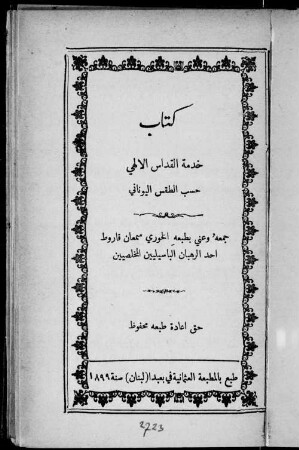 كتاب
خدمة القداس الالهي
حسب الطقس اليوناني
جمعه وعني بطبعه الخوري سمعان قاروط
احد الرهبان الباسيليين المخلصيين
حق اعادة طبعه محفوظ
طبع بالمطبعة العثمانية في بعبدا (لبنان) سنة ١٨٩٩
2723